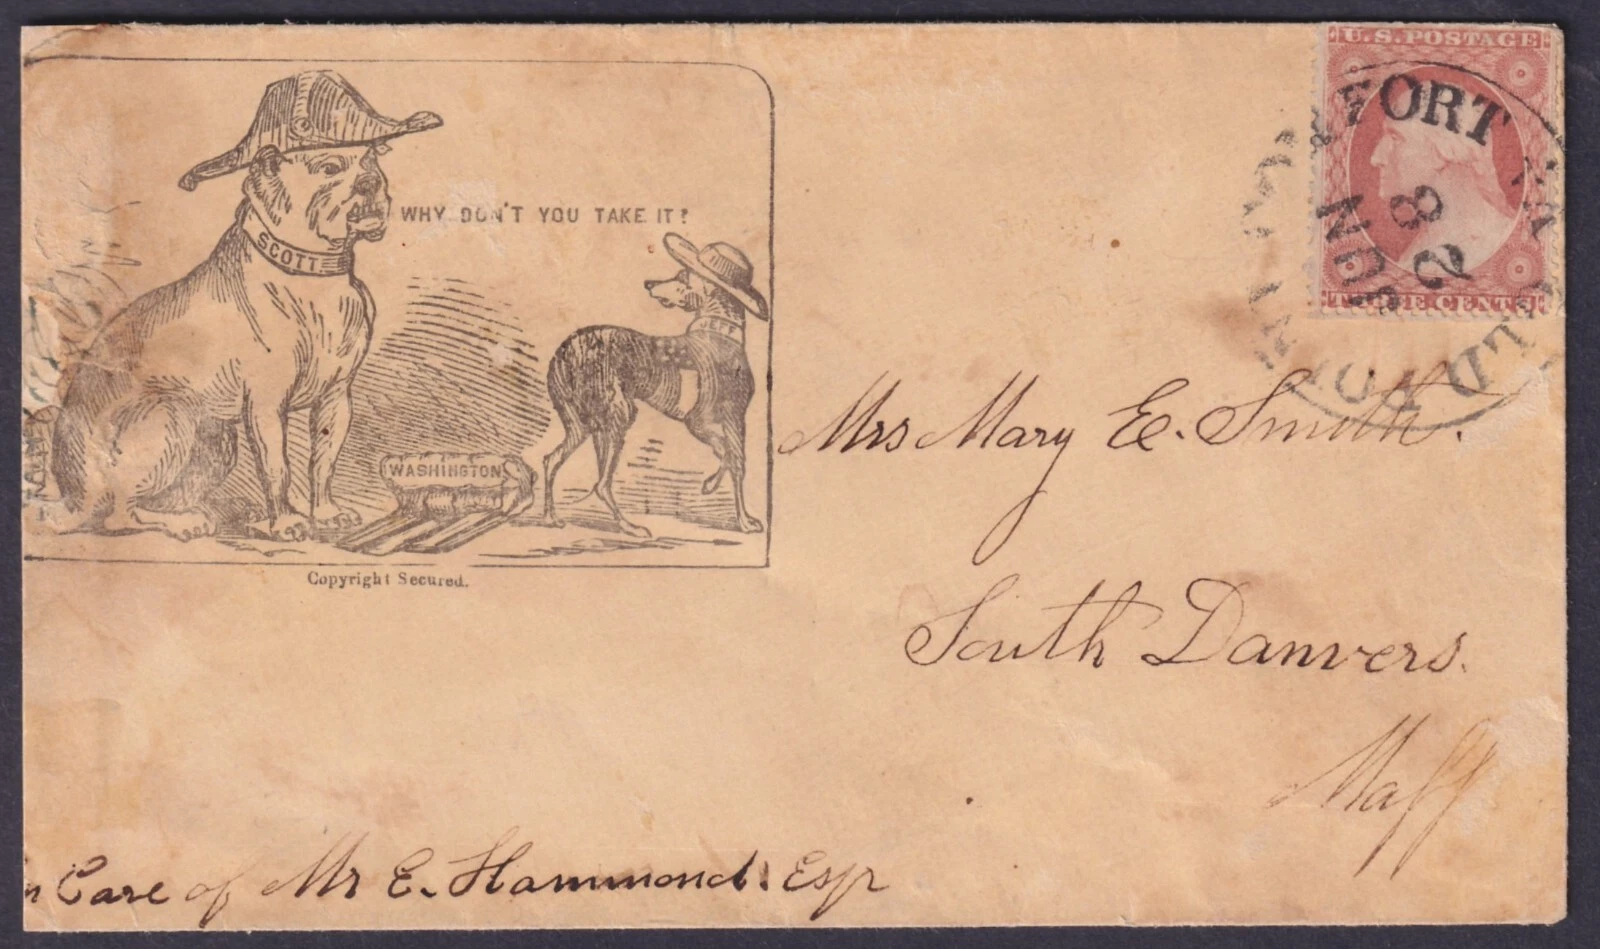 U.S. POSTAGE
THREE CENTS
OLD POINT COMFORT VA
JUN
28
WHY DON'T YOU TAKE IT?
SCOTT
JEFF
WASHINGTON
Copyright Secured.
Mrs Mary E. Smith.
South Danvers.
Mass
Care of Mr E. Hammond. Esqr